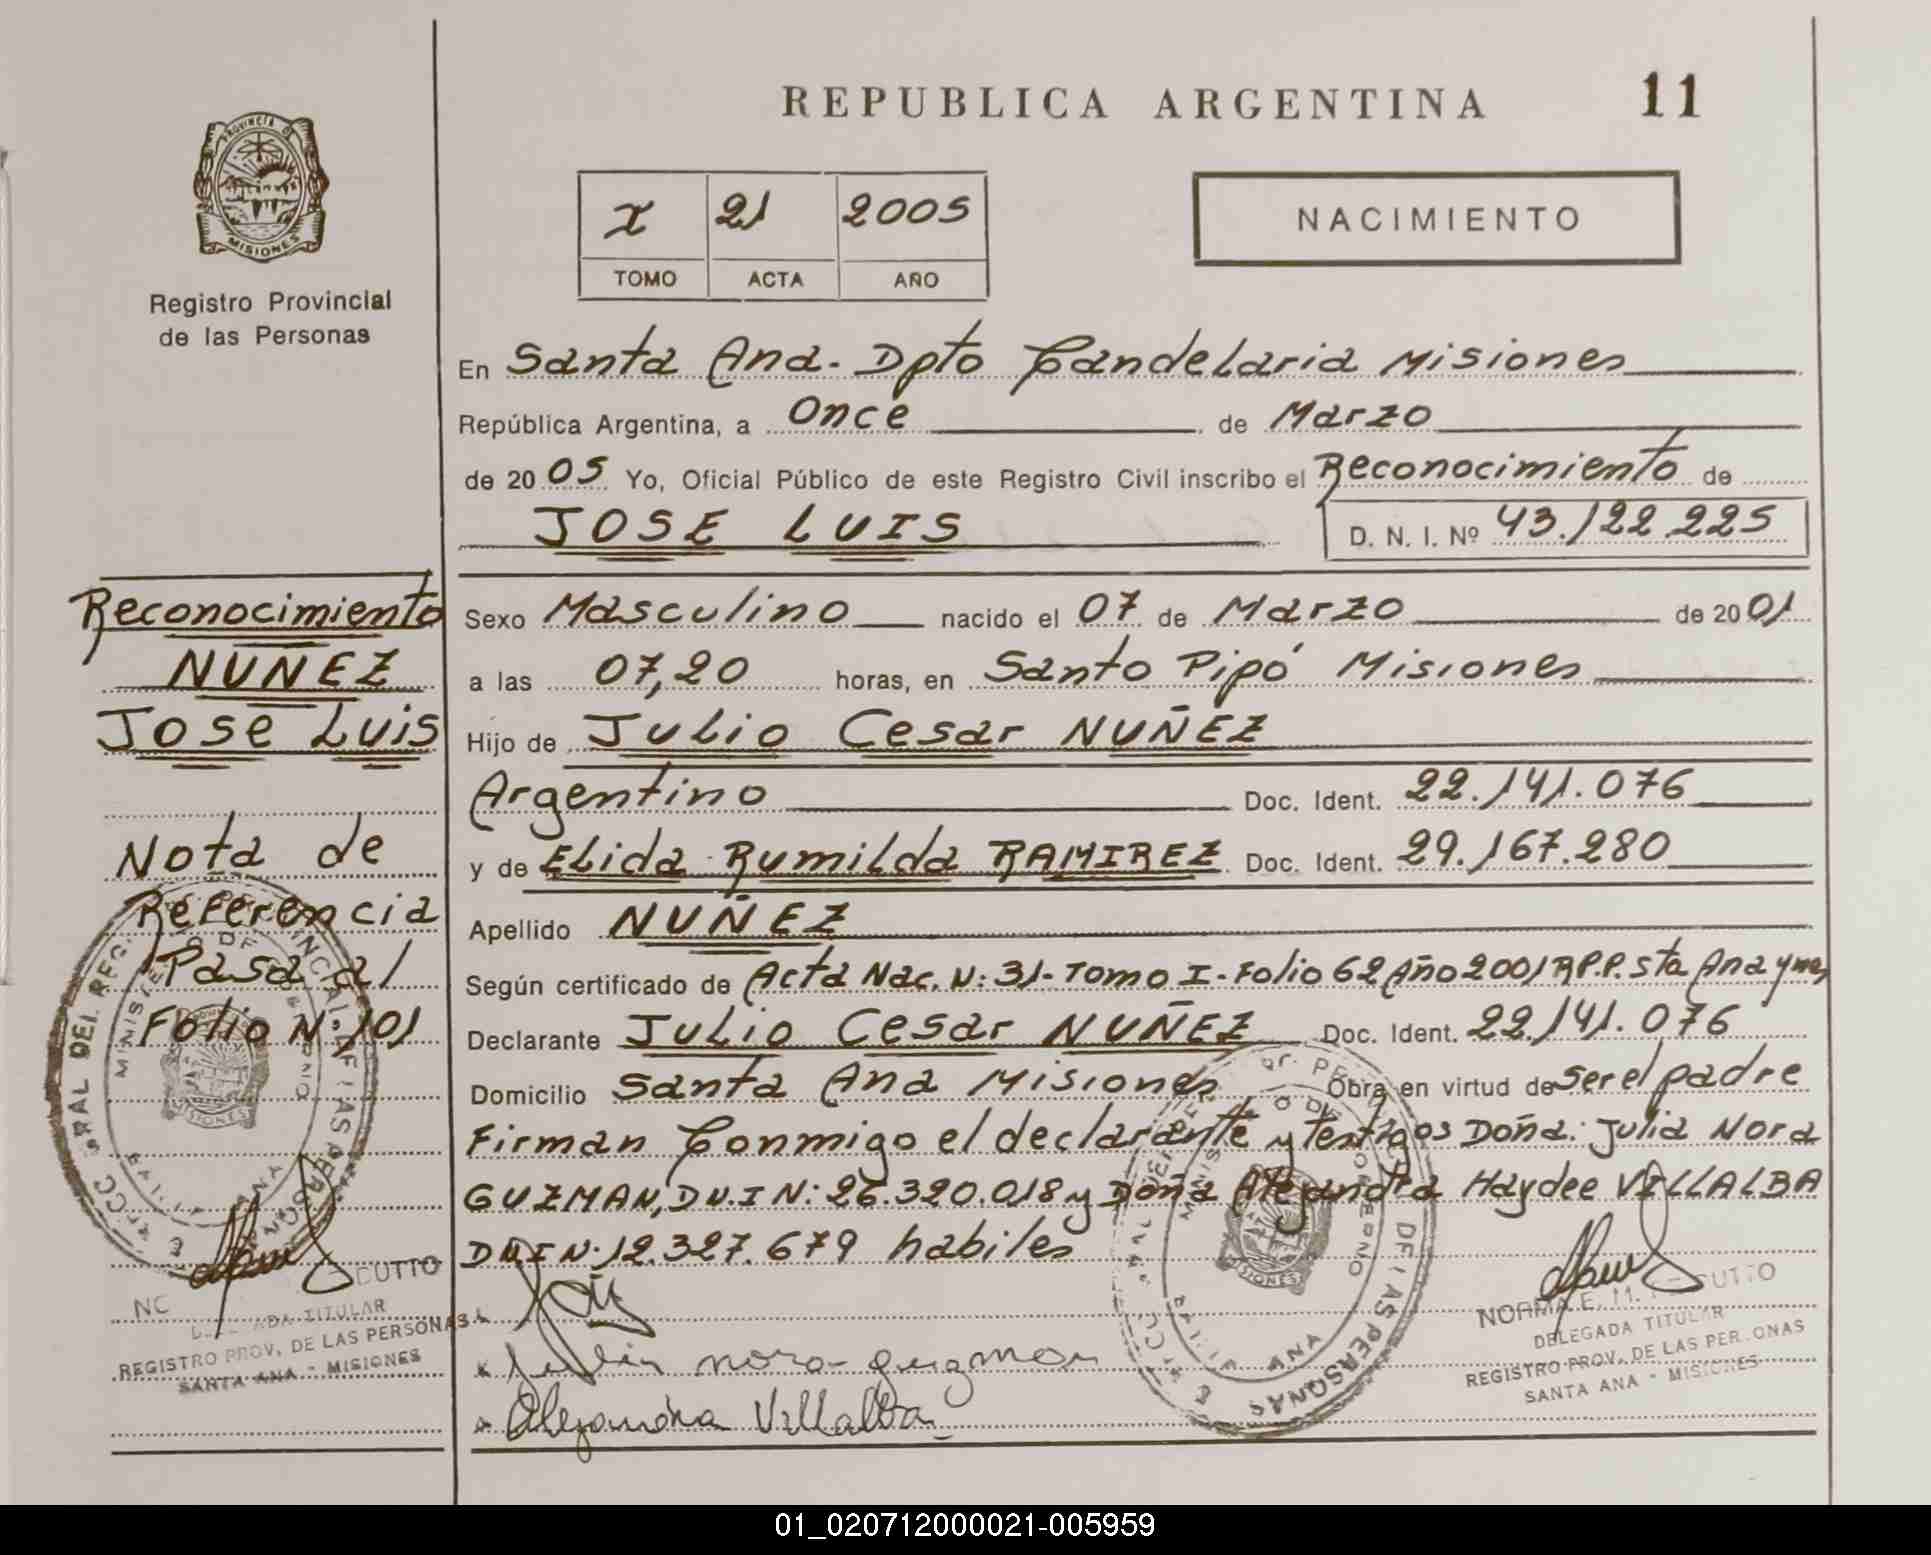 REPUBLICA ARGENTINA 11
PROVINCIA DE
MISIONES
Registro Provincial
de las Personas
I 21 2005
TOMO ACTA AÑO
NACIMIENTO
En Santa Ana - Dpto Candelaria Misiones
República Argentina, a Once de Marzo
de 2005 Yo, Oficial Público de este Registro Civil inscribo el Reconocimiento de
JOSE LUIS D. N. I. Nº 43.122.225
Sexo Masculino nacido el 07 de Marzo de 2001
a las 07,20 horas, en Santo Pipó Misiones
Hijo de Julio Cesar NUÑEZ
Argentino Doc. Ident. 22.141.076
y de Elida Rumilda RAMIREZ Doc. Ident. 29.167.280
Apellido NUÑEZ
Según certificado de Acta Nac. N: 31- Tomo I - Folio 62 Año 2001 R.P.P. Sta Ana y mes
Declarante Julio Cesar NUÑEZ Doc. Ident. 22.141.076
Domicilio Santa Ana Misiones Obra en virtud de ser el padre
Firman Conmigo el declarante y testigos Doña: Julia Nora
GUZMAN, D.N.I N: 26.320.018 y Doña Alejandra Haydee VILLALBA
DNI N: 12.327.679 habiles
Julia nora guzman
Alejandra Villalba
NORMA E. M. CUTTO
DELEGADA TITULAR
REGISTRO PROV. DE LAS PERSONAS
SANTA ANA - MISIONES
Reconocimiento
NUÑEZ
Jose Luis
Nota de
Referencia
Pasa al
Folio N: 101
CUTTO
TITULAR
REGISTRO PROV. DE LAS PERSONAS
SANTA ANA - MISIONES
01_020712000021-005959